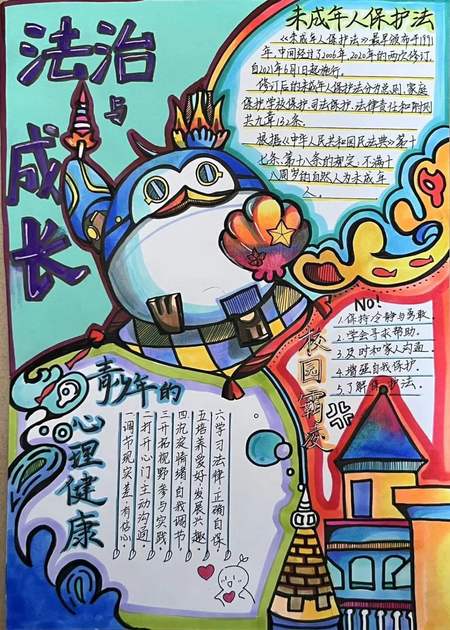 法治
与
成长
未成年人保护法
《未成年人保护法》最早颁布于1991
年,中间经过了2006年、2020年的两次修订,
自2021年6月1日起施行。
修订后的未成年人保护法分为总则、家庭
保护、学校保护、司法保护、法律责任和附则
共九章132条。
根据《中华人民共和国民法典》第十
七条、第十八条的规定,不满十
八周岁的自然人为未成年
人。
No!
1.保持冷静与勇敢.
2.学会寻求帮助.
3.及时和家人沟通.
4.增强自我保护.
5.了解保护法.
校园霸凌
青少年的
心理健康
六学习法律正确自保
五培养爱好发展兴趣
四沉淀情绪自我调节
三开拓视野参与实践
二打开心门主动沟通
一调节现实差有信心